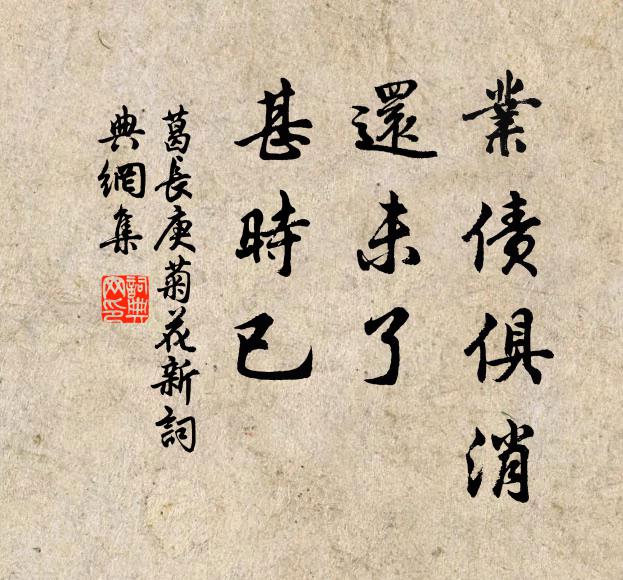 業債俱消
還未了
甚時已
葛長庚菊花新詞
典網集
詞典
网印